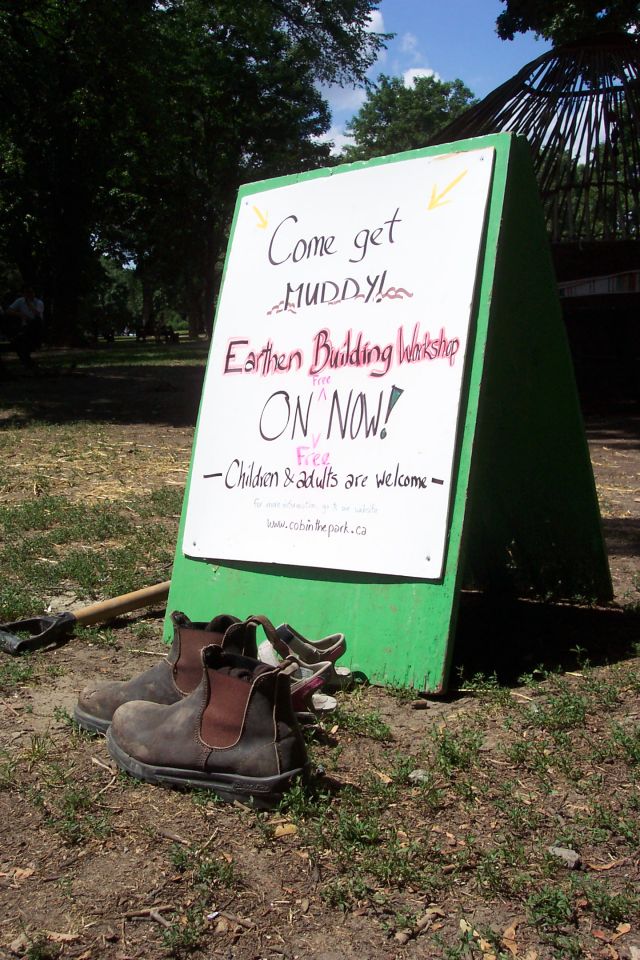 Come get
MUDDY!
Earthen Building Workshop
Free
ON NOW!
Free
- Children & adults are welcome -
For more information, go to our website
www.cobinthepark.ca